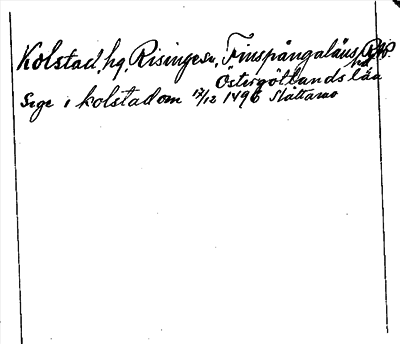 Kolstad, hg, Risinge sn, Finspångaläns hd
Östergötlands län
Sege i kolstadom 17/12 1496 Slättarea